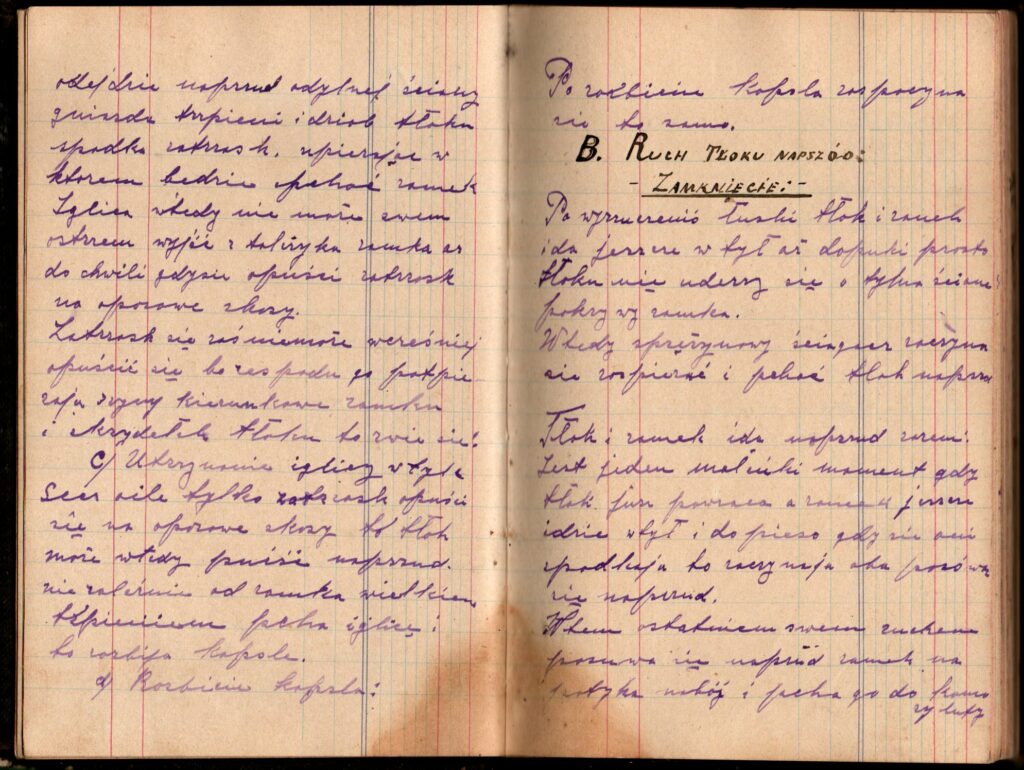 odejdzie naprzud odylnej ściany
gniazda trzpieni i dziob tłoku
spodka zatrzask, upierając w
ktorem bedzie pchać zamek
Iglica wtedy nie może swem
ostrzem wyjść z talizyka zamka az
do chwili gdysie opuści zatrzosk
na oporowe skosy.
Zatrzask się zaś niemoże wcześniej
opuścić się bo zespodu go potpie
rają kierunkowe zamku
i skrydełek tłoku to zwie się:
c) Utrzymanie iglicy wtyle
Seer oile tylko zatrzosk opuści
się na oporowe skosy to tłok
może wtedy puiść naprzud.
nie zależnie od zamka wielkiem
tżpieniem pcha iglicę i
to rozbija kapsle.
d) Rozbicie kapsla:
Po rozbiciu kapsla rospoczyna
sie to samo.
B. RUCH TŁOKU NAPSZÓD:
- ZAMKNIĘCIE: -
Po wyrzucenić łuski tłok i zamek
ida jeszcze w tył aż dopuki prosto
tłoku nie uderzy się o tylna ściane
pokrywy zamka.
Wtedy spreżynowy ściągacz zaczyna
sie rospierać i pchać tłok naprzud
Tłok i zamek ida naprzud razem:
Jest jeden maleńki moment gdy
tłok jusz powraca a zamek jeszcze
idzie wtył i dopiero gdy sie oni
spodkają to zaczynają oba posówa
się naprzud.
Wtem ostatniem swem ruchem
posuwa się naprzód zamek na
potyka nabój i pcha go do komo
ry lufy